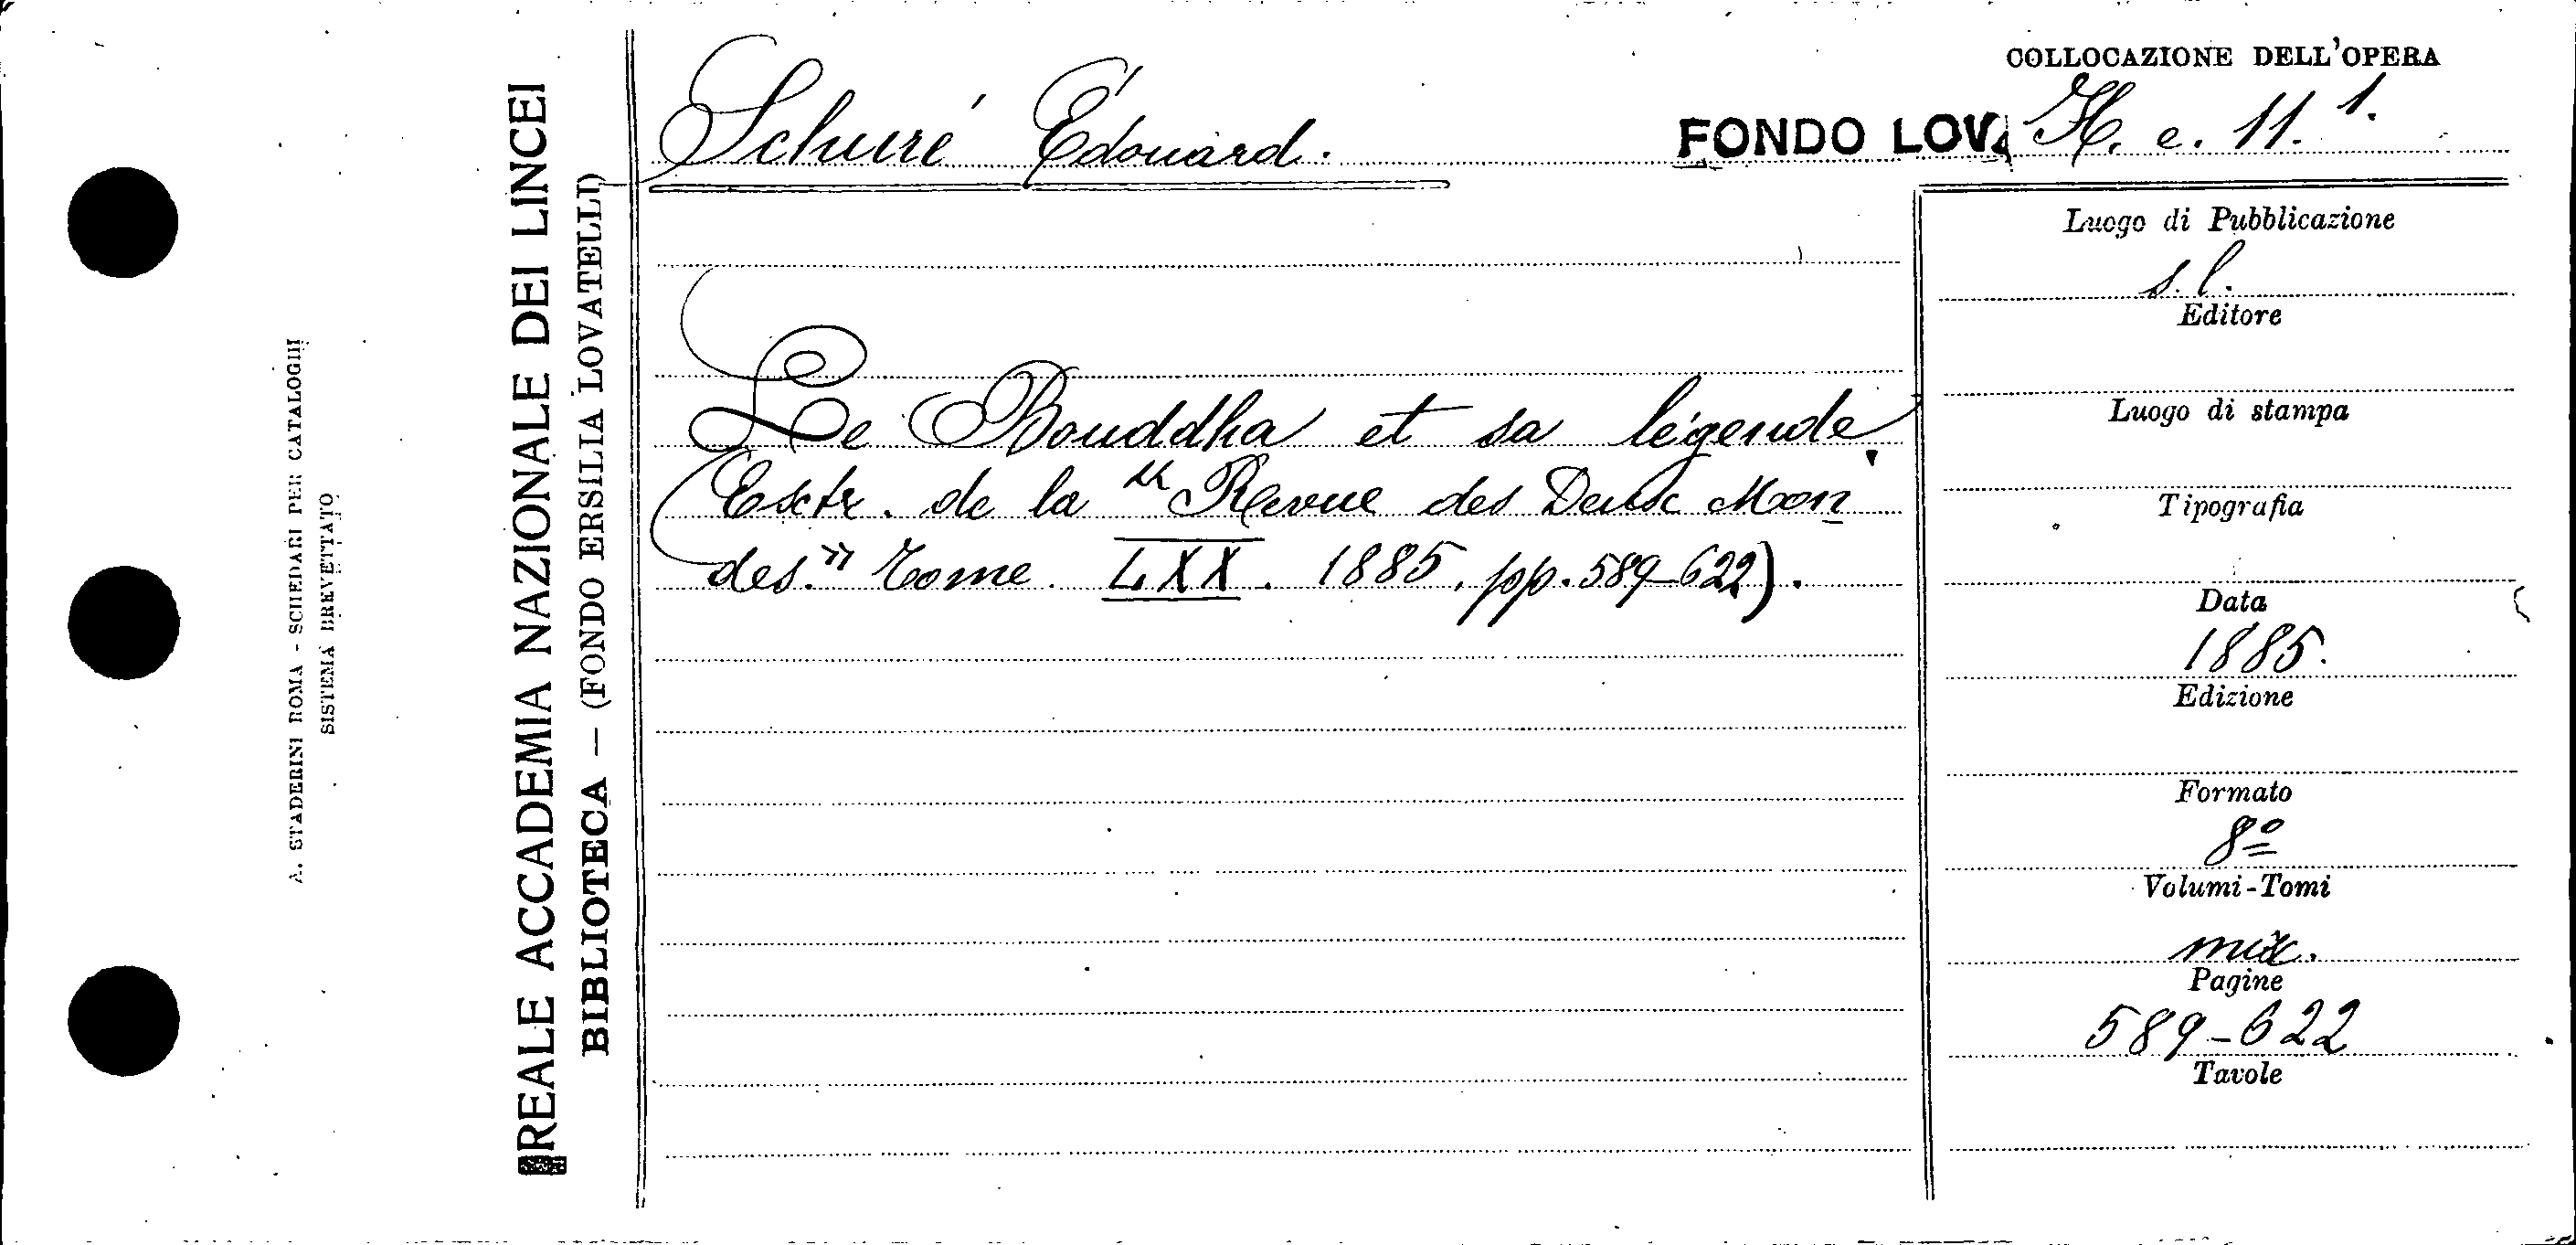 COLLOCAZIONE DELL'OPERA
Schuré Édouard.
FONDO LOV. H. e. 11. 1.
Le Bouddha et sa légende
(Extr. de la "Revue des Deux Mon
des." Tome LXX. 1885. pp. 589-622).
Luogo di Pubblicazione
s. l.
Editore
Luogo di stampa
Tipografia
Data
1885.
Edizione
Formato
8º
Volumi-Tomi
Pagine
589-622
Tavole
REALE ACCADEMIA NAZIONALE DEI LINCEI
BIBLIOTECA — (FONDO ERSILIA LOVATELLI)
A. STADERINI ROMA - SCHEDARI PER CATALOGHI
SISTEMA BREVETTATO